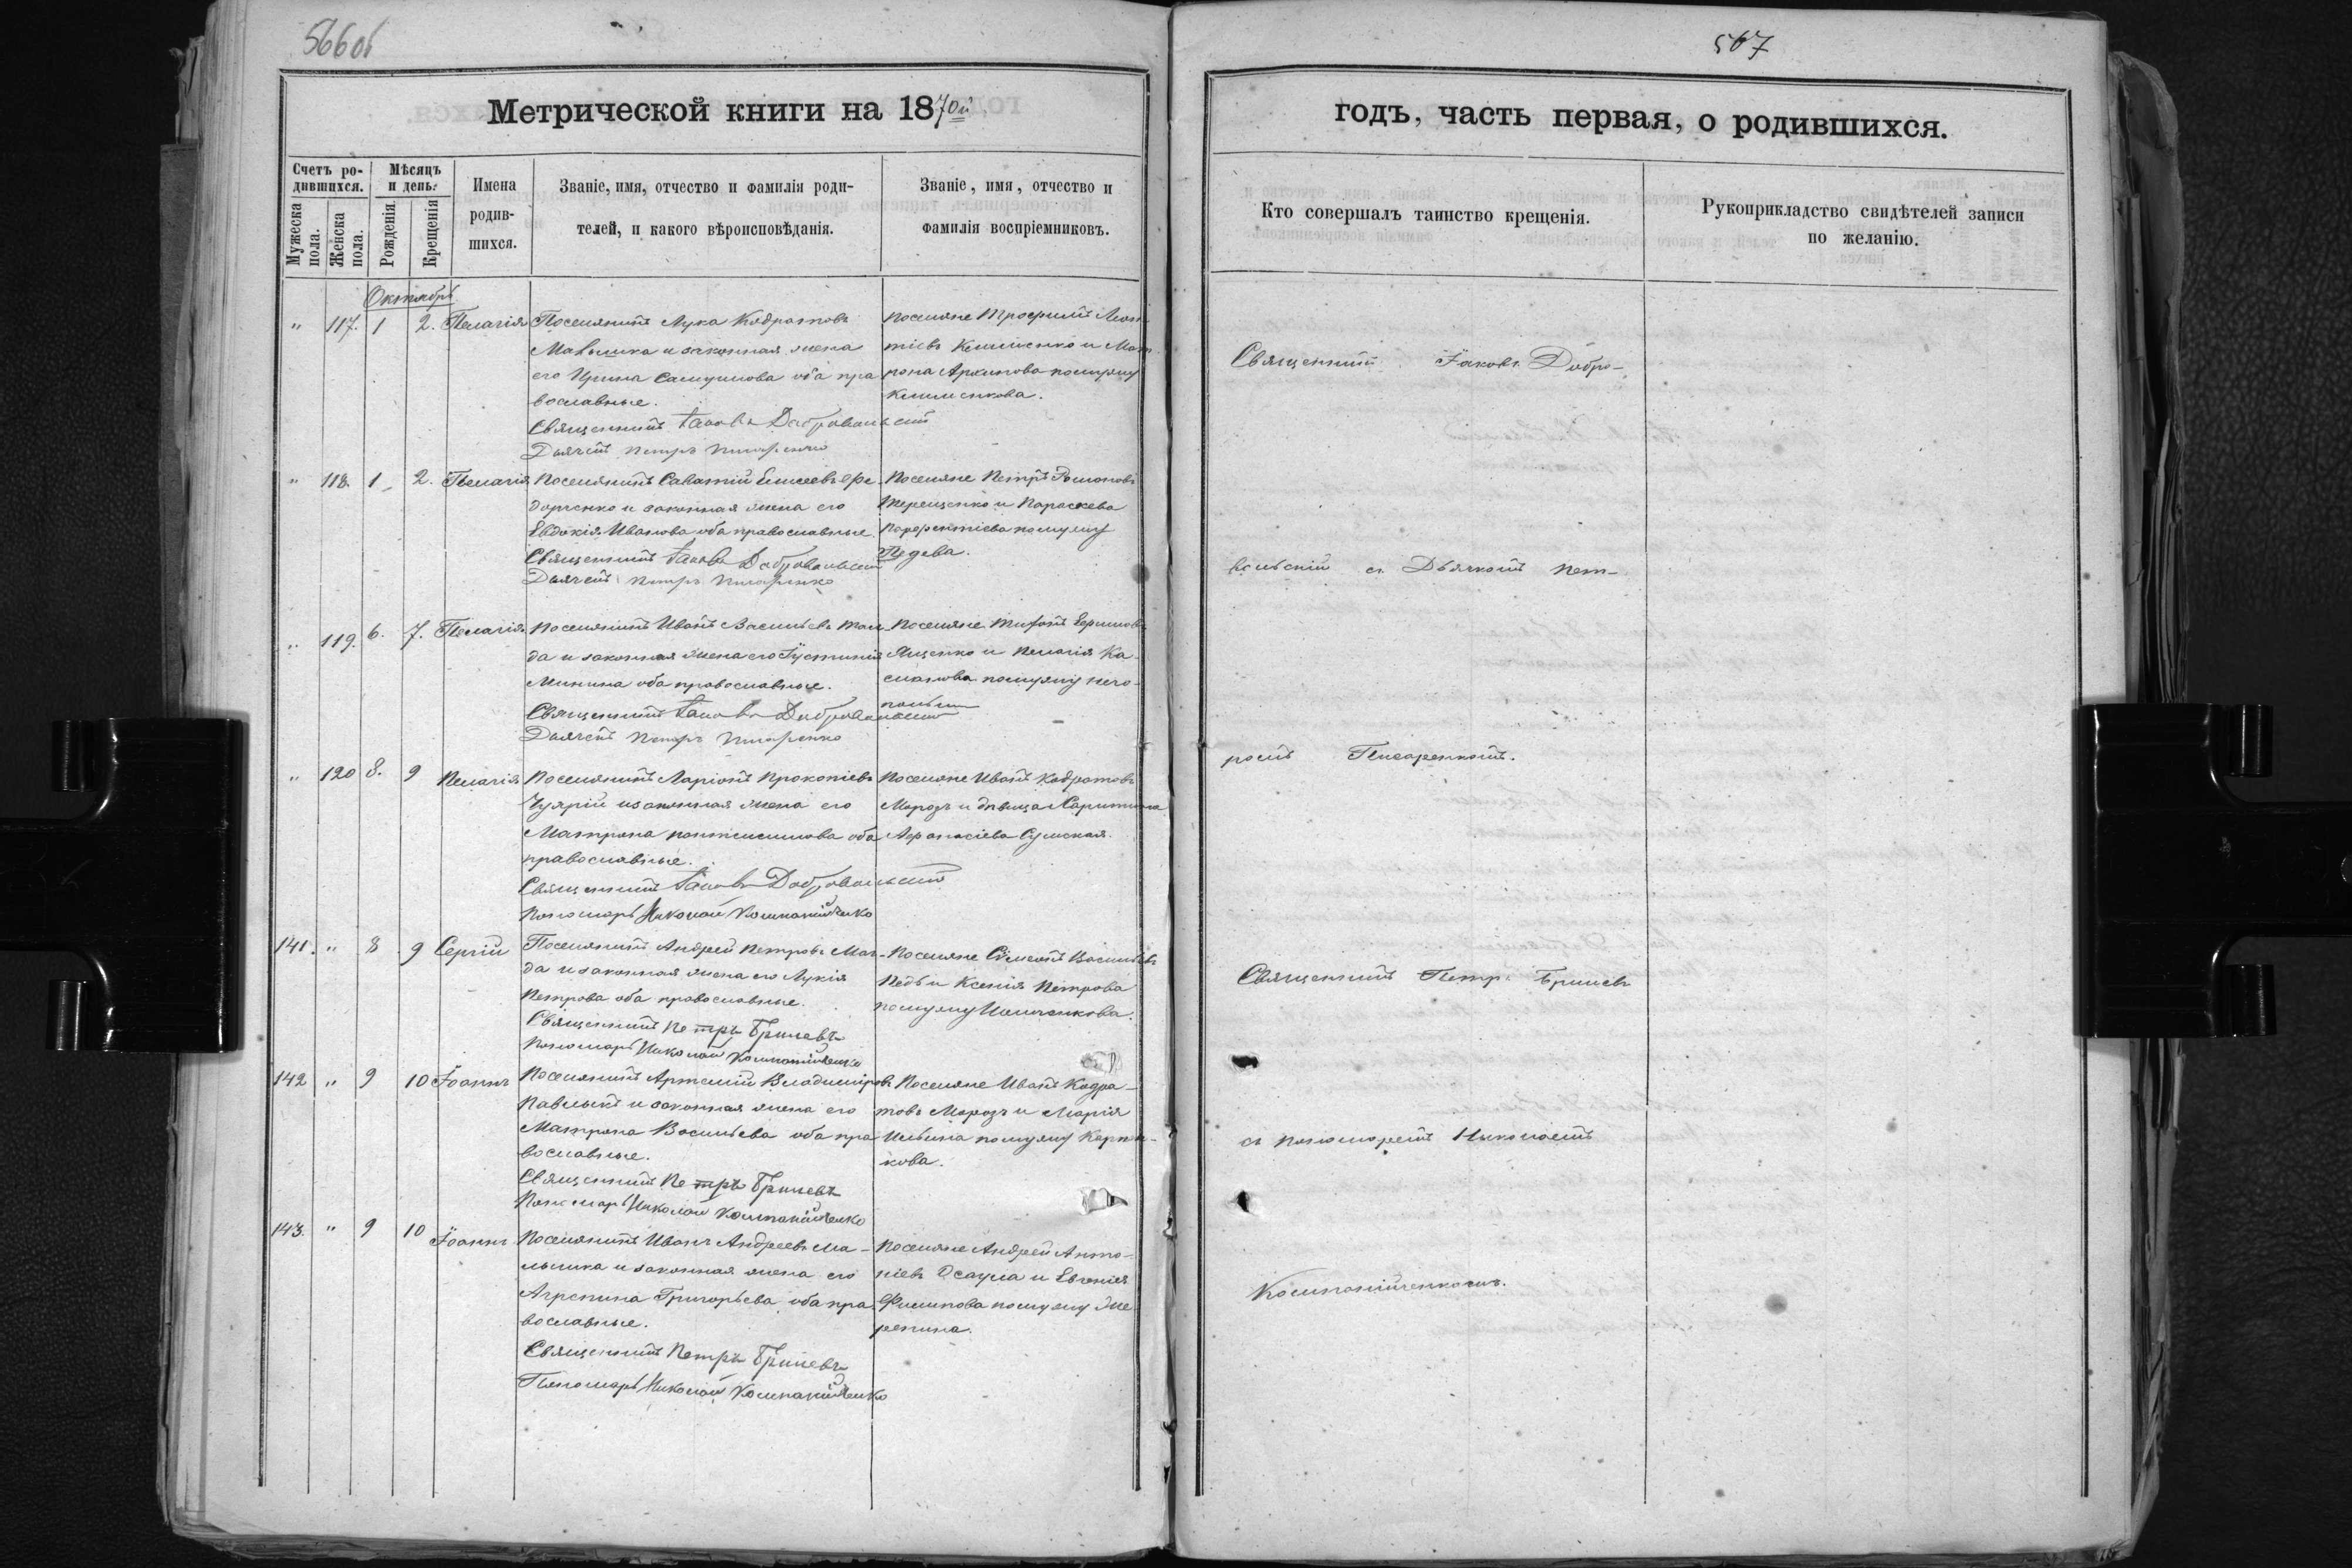 566об
Метрической книги на 1870й
Счетъ родившихся.
Мѣсяцъ и день.
Мужеска пола.
Женска пола.
Рожденія
Крещенія
Имена родившихся.
Званіе, имя, отчество и фамилія роди-
телей, и какого вѣроисповѣданія.
Званіе, имя, отчество и
фамилія воспріемниковъ.
Октябрь
" 117. 1 2. Пелагія
Поселянинъ Лука Кодратовъ
и законная жена
его Ирина Самуилова оба пра
вославные.
Священникъ Іаковъ Добровольскій
Дьячекъ Петръ Писаренко
Поселяне Трофимъ Леон
тіевъ Клименко и Мат
рона Архипова по мужу
Клименкова.
" 118. 1 2. Пелагія
Поселянинъ Саватій Елисеевъ Фе-
дорченко и законная жена его
Евдокія Иванова оба православные
Священникъ Іаковъ Добровольскій
Дьячекъ Петръ Писаренко
Поселяне Петръ Романовъ
Терещенко и Параскева
Парфентіева по мужу
" 119. 6. 7. Пелагія
Поселянинъ Иванъ Васильевъ
да и законная жена его Іустинія
Минина оба православные.
Священникъ Іаковъ Добровольскій
Дьячекъ Петръ Писаренко
Поселяне Ефимовъ
Яценко и Пелагія Ка
по мужу
" 120 8. 9 Пелагія
Поселянинъ Ларіонъ Прокопіевъ
и законная жена его
Матрона Пантелимонова оба
православные.
Священникъ Іаковъ Добровольскій
Пономарь Николай Компанійченко
Поселяне Иванъ Кодратовъ
Морозъ и дѣвица Харитина
Афанасіева Сумская.
141. " 8 9 Сергій
Поселянинъ Андрей Петровъ
да и законная жена его Лукія
Петрова оба православные.
Священникъ Петръ Гриневъ
Пономарь Николай Компанійченко
Поселяне Симеонъ Васильевъ
Педь и Ксенія Петрова
по мужу
142 " 9 10 Іоаннъ
Поселянинъ Артемій Владиміровъ
Павлыкъ и законная жена его
Матрона Васильева оба пра
вославные.
Священникъ Петръ Гриневъ
Пономарь Николай Компанійченко
Поселяне Иванъ Кодра-
товъ Морозъ и Марія
Ильина по мужу Карпен-
кова.
143. " 9 10 Іоаннъ
Поселянинъ Иванъ Андреевъ Ма-
лышка и законная жена его
Агрепина Григорьева оба пра
вославные.
Священникъ Петръ Гриневъ
Пономарь Николай Компанійченко
Поселяне Андрей Анто-
ніевъ Осаула и Евгенія
Филипова по мужу Же
репина.
567
годъ, часть первая, о родившихся.
Кто совершалъ таинство крещенія.
Рукоприкладство свидѣтелей записи
по желанію.
Священникъ Іаковъ Добро-
вольскій съ Дьячкомъ Пет-
ромъ Писаренкомъ.
Священникъ Петръ Гриневъ
съ пономаремъ Николаемъ
Компанійченкомъ.